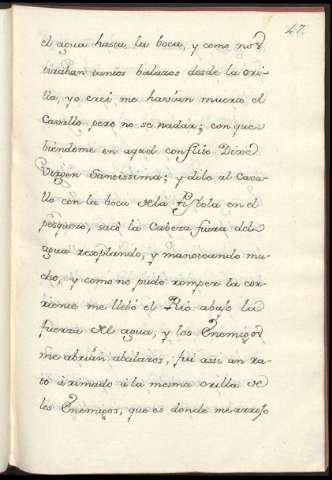 47.
el agua hasta la boca, y como nos
tiraban tantos balazos desde la ori-
lla, yo crei me havian muerto el
Cavallo pero no se nadar; con que
biendome en aquel conflito Dixe
Virgen Santissima; y dile al Cava-
llo con la boca de la Pistola en el
pesquezo, sacò la Cabeza fuera del
agua resoplando, y manoteando mu-
cho, y como no pudo romper la cor-
riente me llebó el Rio abajo la
fuerza del agua, y los Enemigos
me abrian abalazos, fui assi un ra-
to arimado à la mesma orilla de
los Enemigos, que es donde me arrojo